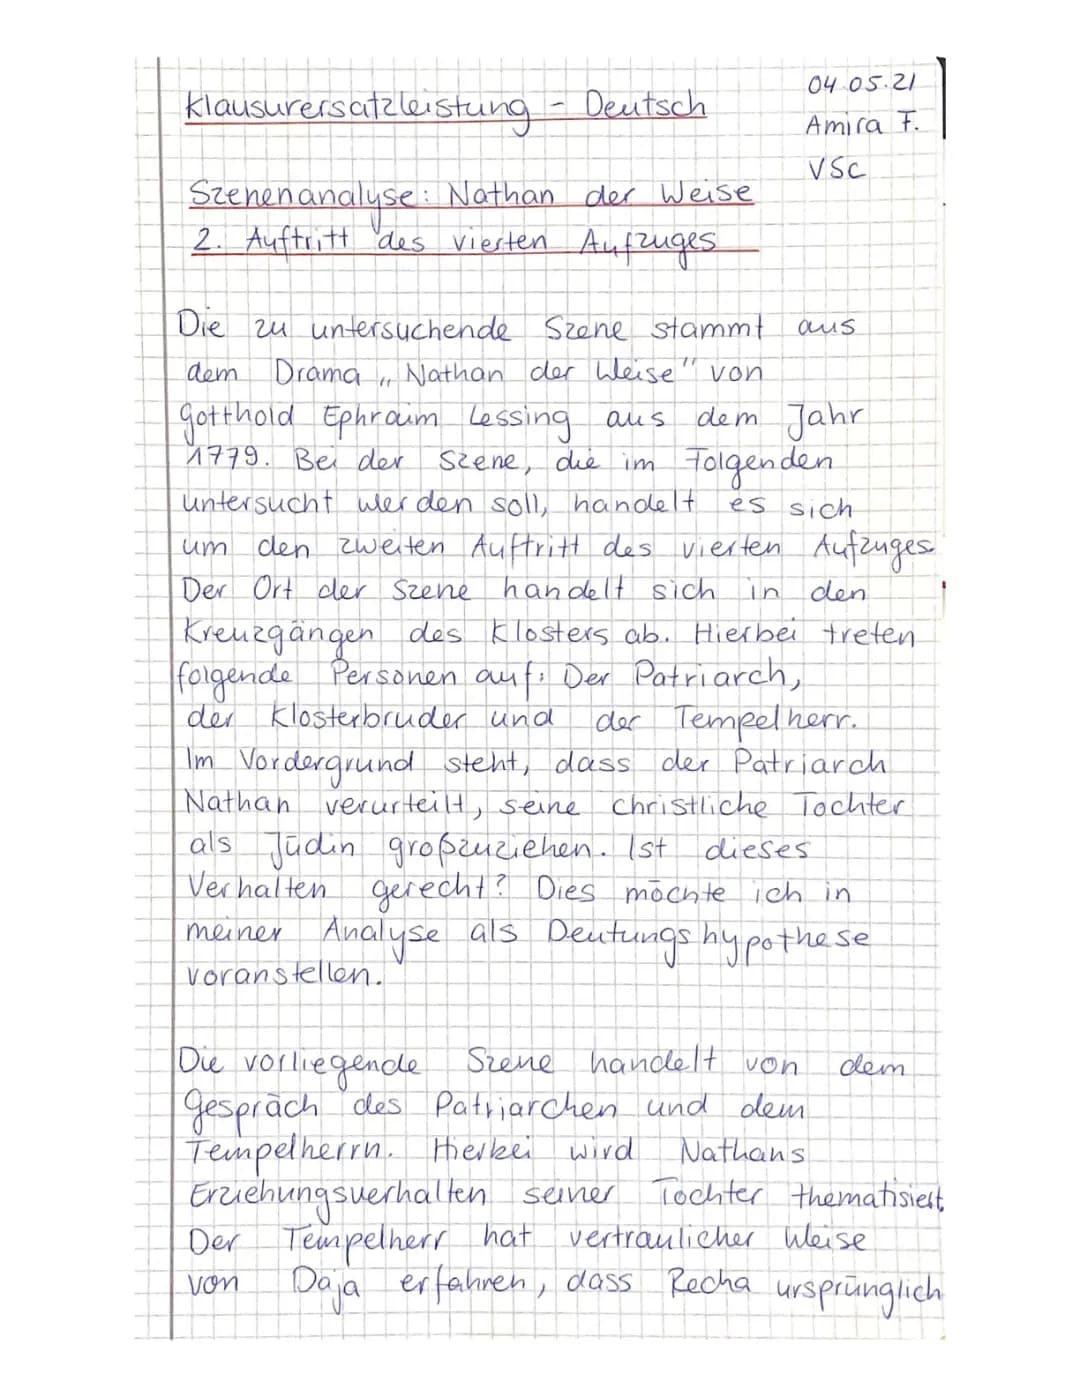 Klausurersatzleistung - Deutsch
04.05.21
Amira F.
VSC
Szenenanalyse: Nathan der Weise
2. Auftritt des vierten Aufzuges
Die zu untersuchende Szene stammt aus
dem Drama „Nathan der Weise" von
Gotthold Ephraim Lessing aus dem Jahr
1779. Bei der Szene, die im Folgenden
untersucht werden soll, handelt es sich
um den zweiten Auftritt des vierten Aufzuges.
Der Ort der Szene handelt sich in den
Kreuzgängen des Klosters ab. Hierbei treten
folgende Personen auf: Der Patriarch,
der Klosterbruder und der Tempelherr.
Im Vordergrund steht, dass der Patriarch
Nathan verurteilt, seine christliche Tochter
als Jüdin großzuziehen. Ist dieses
Verhalten gerecht? Dies möchte ich in
meiner Analyse als Deutungshypothese
voranstellen.
Die vorliegende Szene handelt von dem
Gespräch des Patriarchen und dem
Tempelherrn. Hierbei wird Nathans
Erziehungsverhalten seiner Tochter thematisiert.
Der Tempelherr hat vertraulicher Weise
von Daja erfahren, dass Recha ursprünglich